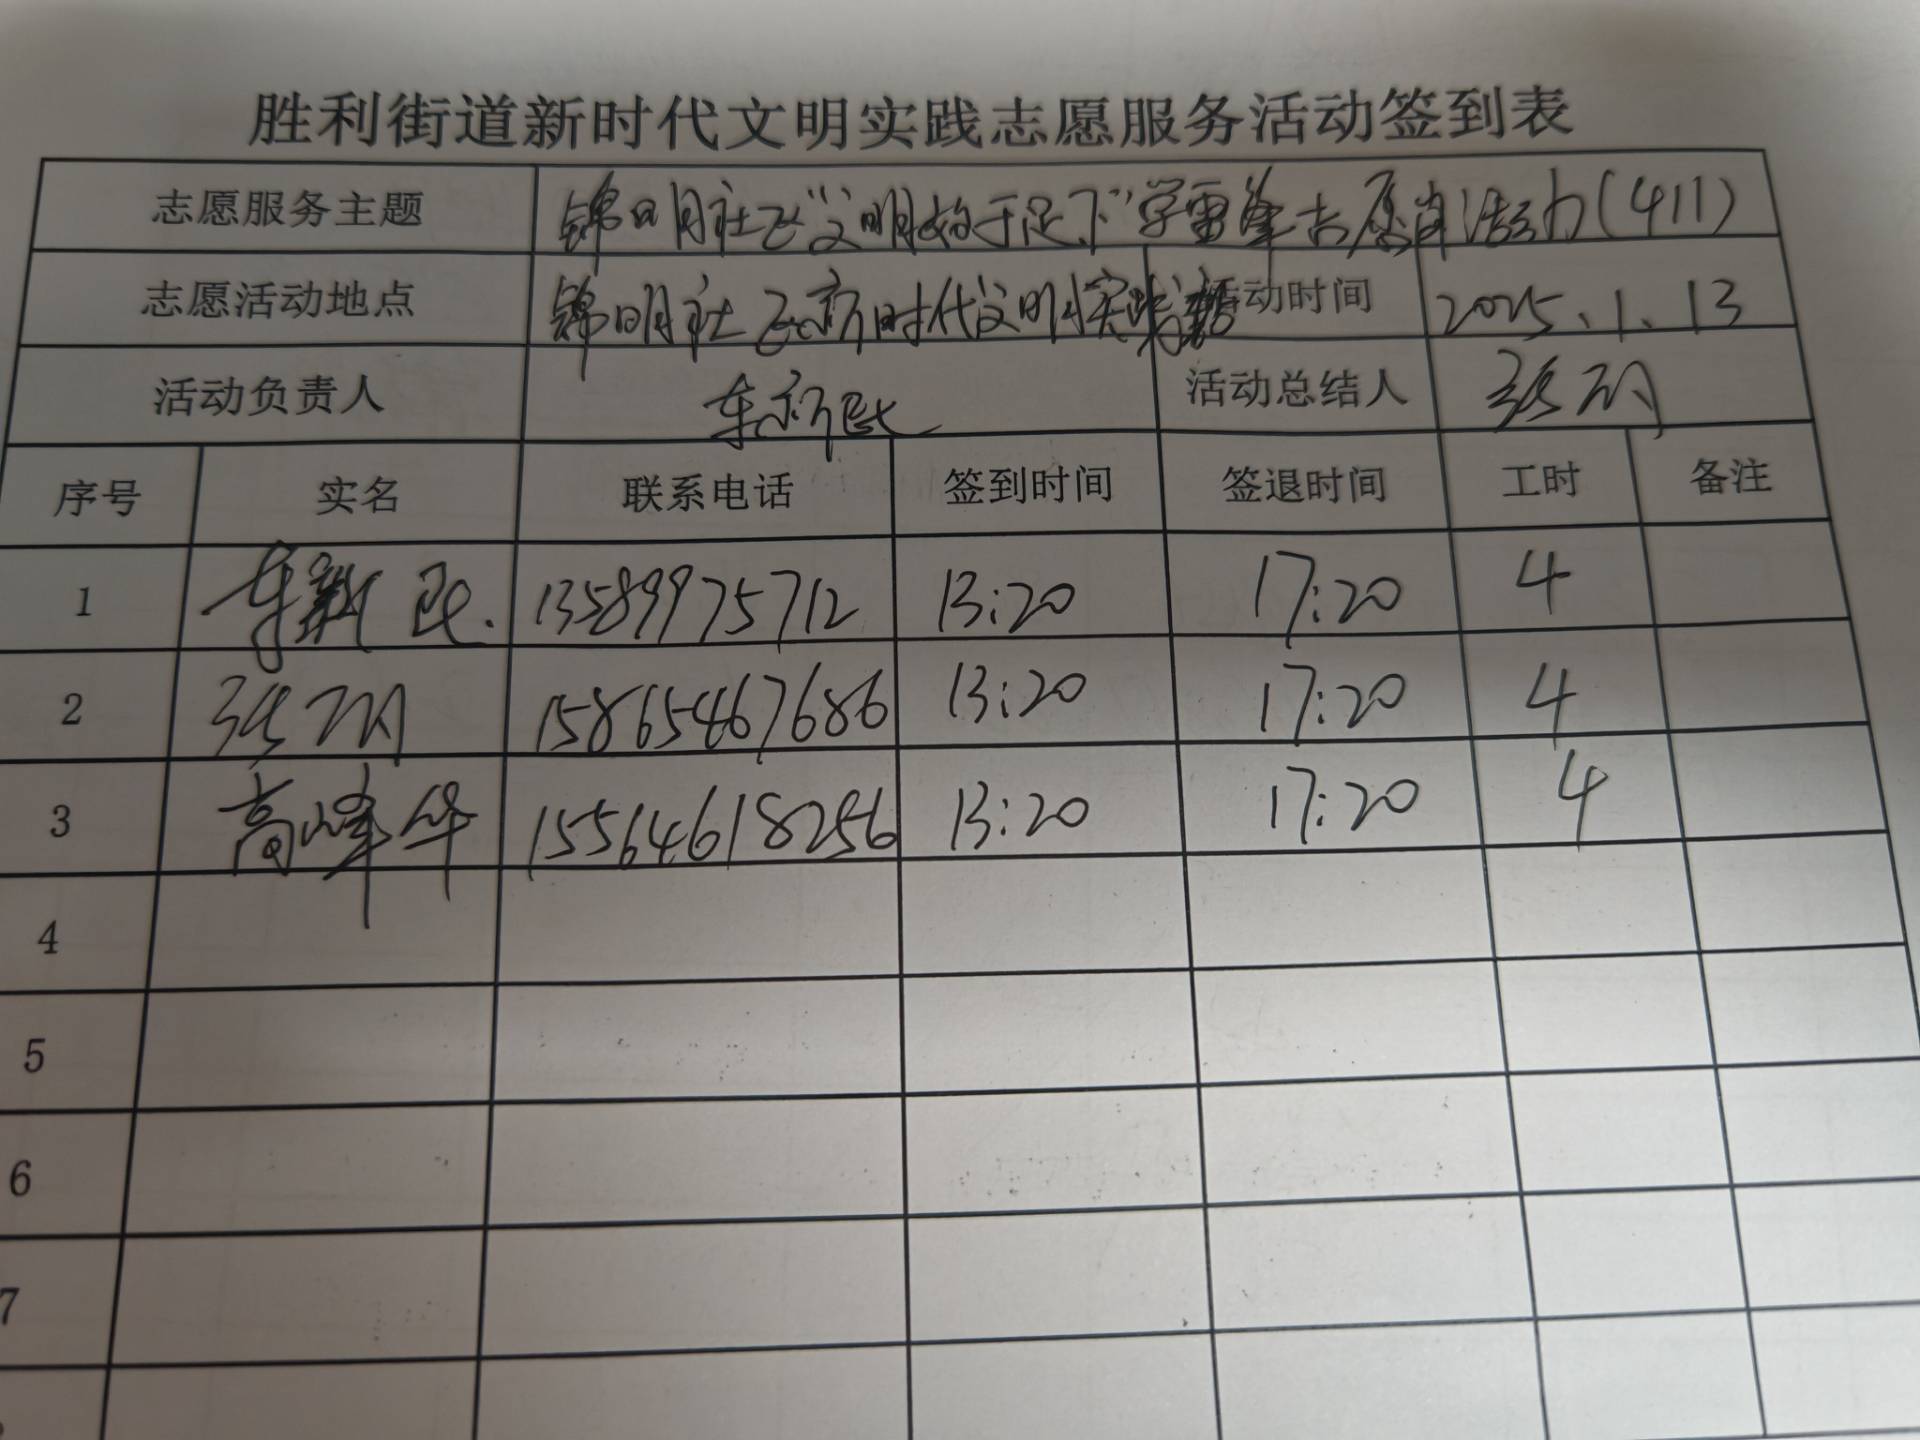 胜利街道新时代文明实践志愿服务活动签到表
志愿服务主题 锦明社区"文明始于足下"学雷锋志愿者活动(411)
志愿活动地点 锦明社区新时代文明实践站 活动时间 2025.1.13
活动负责人 车新民 活动总结人 张
序号 实名 联系电话 签到时间 签退时间 工时 备注
1 车新民 13589975712 13:20 17:20 4
2 张 15865467686 13:20 17:20 4
3 高峰华 15564618256 13:20 17:20 4
4
5
6
7